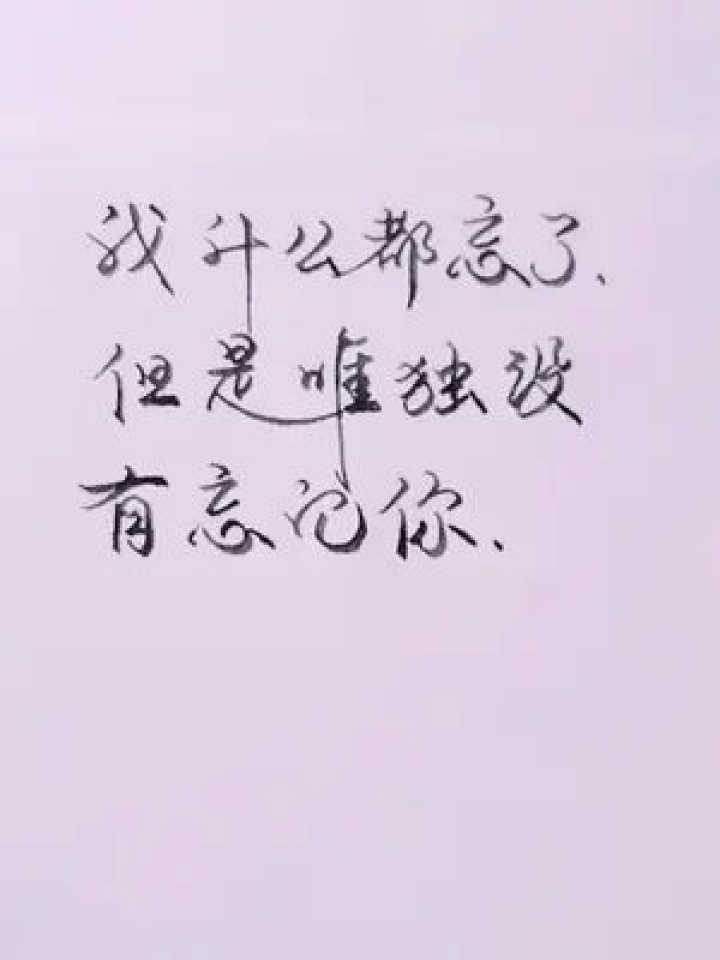 我什么都忘了、
但是唯独没
有忘记你、